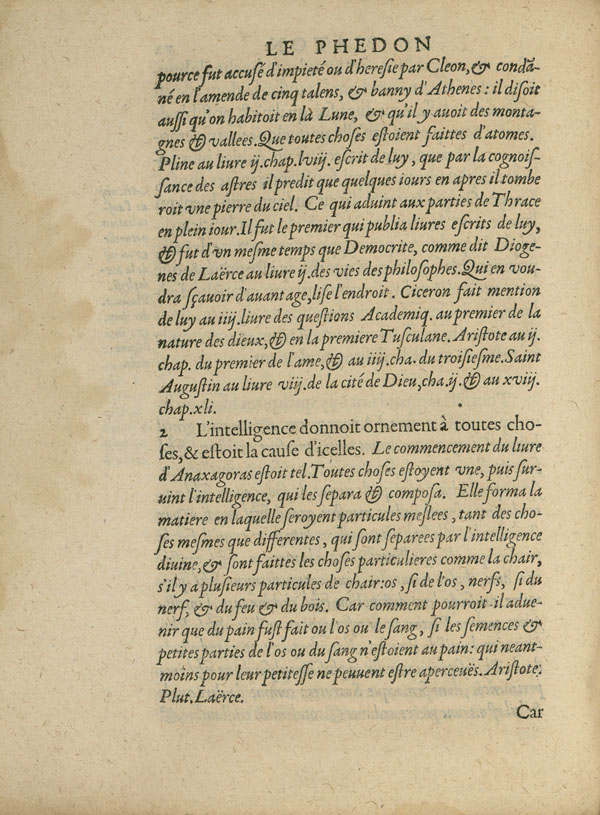 LE PHEDON
pource fut accusé d'impieté ou d'heresie par Cleon, & condã-
né en l'amende de cinq talens, & banny d'Athenes : il disoit
aussi qu'on habitoit en là Lune, & qu'il y auoit des monta-
gnes & vallees. Que toutes choses estoient faittes d'atomes.
Pline au liure ij. chap. lviij. escrit de luy, que par la cognois-
sance des astres il predit que quelques iours en apres il tombe
roit vne pierre du ciel. Ce qui aduint aux parties de Thrace
en plein iour. Il fut le premier qui publia liures escrits de luy,
& fut d'vn mesme temps que Democrite, comme dit Dioge-
nes de Laërce au liure ij. des vies des philosophes. Qui en vou-
dra sçauoir d'auantage, lise l'endroit. Ciceron fait mention
de luy au iiij. liure des questions Academiq. au premier de la
nature des dieux, & en la premiere Tusculane. Aristote au ij.
chap. du premier de l'ame, & au iiij. cha. du troisiesme. Saint
Augustin au liure viij. de la cité de Dieu, cha. ij. & au xviij.
chap. xli.
2 L'intelligence donnoit ornement à toutes cho-
ses, & estoit la cause d'icelles. Le commencement du liure
d'Anaxagoras estoit tel. Toutes choses estoyent vne, puis sur-
uint l'intelligence, qui les separa & composa. Elle forma la
matiere en laquelle seroyent particules meslees, tant des cho-
ses mesmes que differentes, qui sont separees par l'intelligence
diuine, & sont faittes les choses particulieres comme la chair,
s'il y a plusieurs particules de chair: os, si de l'os, nerfs, si du
nerf, & du feu & du bois. Car comment pourroit-il adue-
nir que du pain fust fait ou l'os ou le sang, si les semences &
petites parties de l'os ou du sang n'estoient au pain: qui neant-
moins pour leur petitesse ne peuuent estre aperceuës. Aristote.
Plut. Laërce.
Car